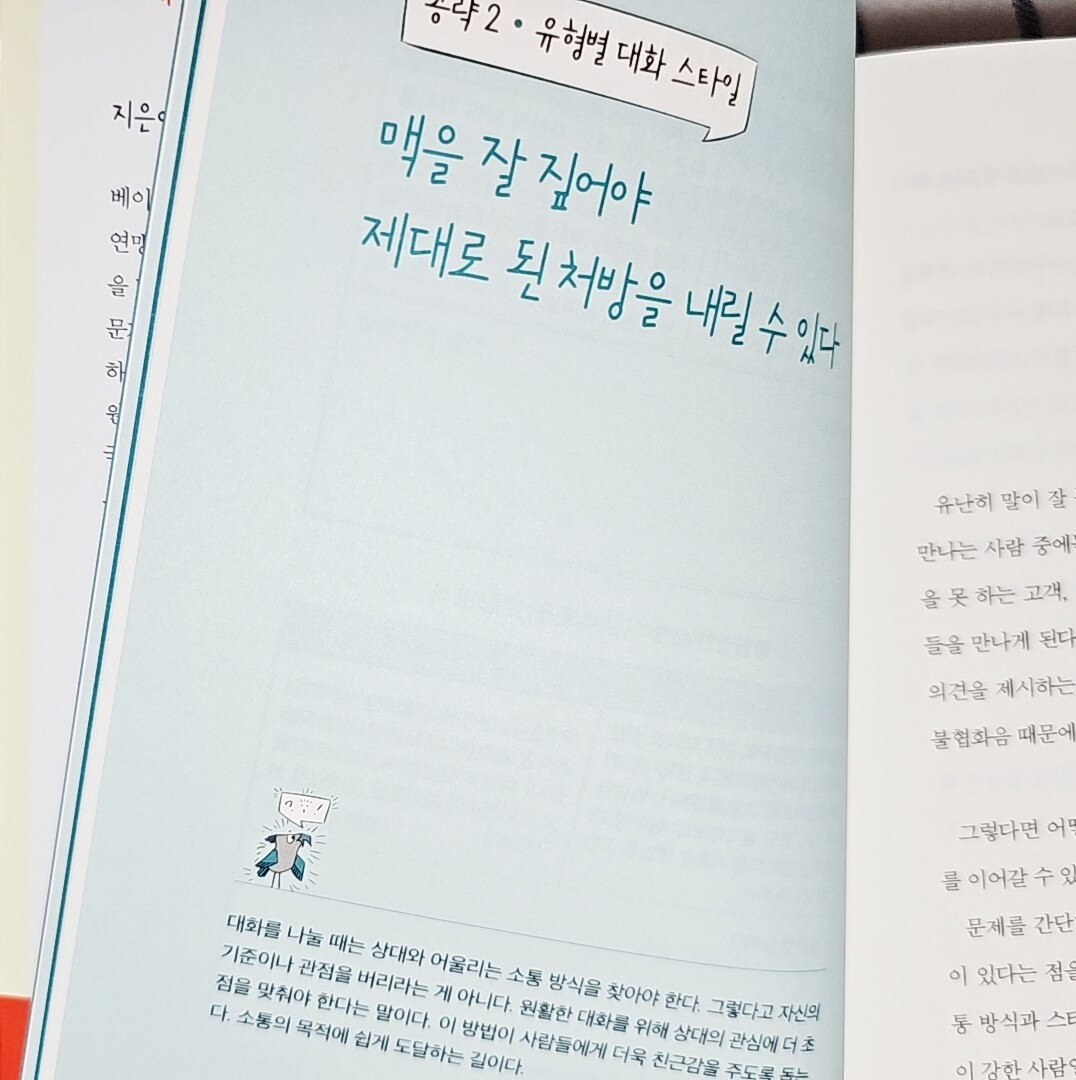 공략 2 • 유형별 대화 스타일
맥을 잘 짚어야
제대로 된 처방을 내릴 수 있다
대화를 나눌 때는 상대와 어울리는 소통 방식을 찾아야 한다. 그렇다고 자신의
기준이나 관점을 버리라는 게 아니다. 원활한 대화를 위해 상대의 관심에 더 초
점을 맞춰야 한다는 말이다. 이 방법이 사람들에게 더욱 친근감을 주도록 돕는
다. 소통의 목적에 쉽게 도달하는 길이다.
유난히 말이 잘
만나는 사람 중에
을 못 하는 고객,
들을 만나게 된다
의견을 제시하는
불협화음 때문에
그렇다면
를 이어갈 수
문제를
이 있다는 점을
통 방식과
이 강한